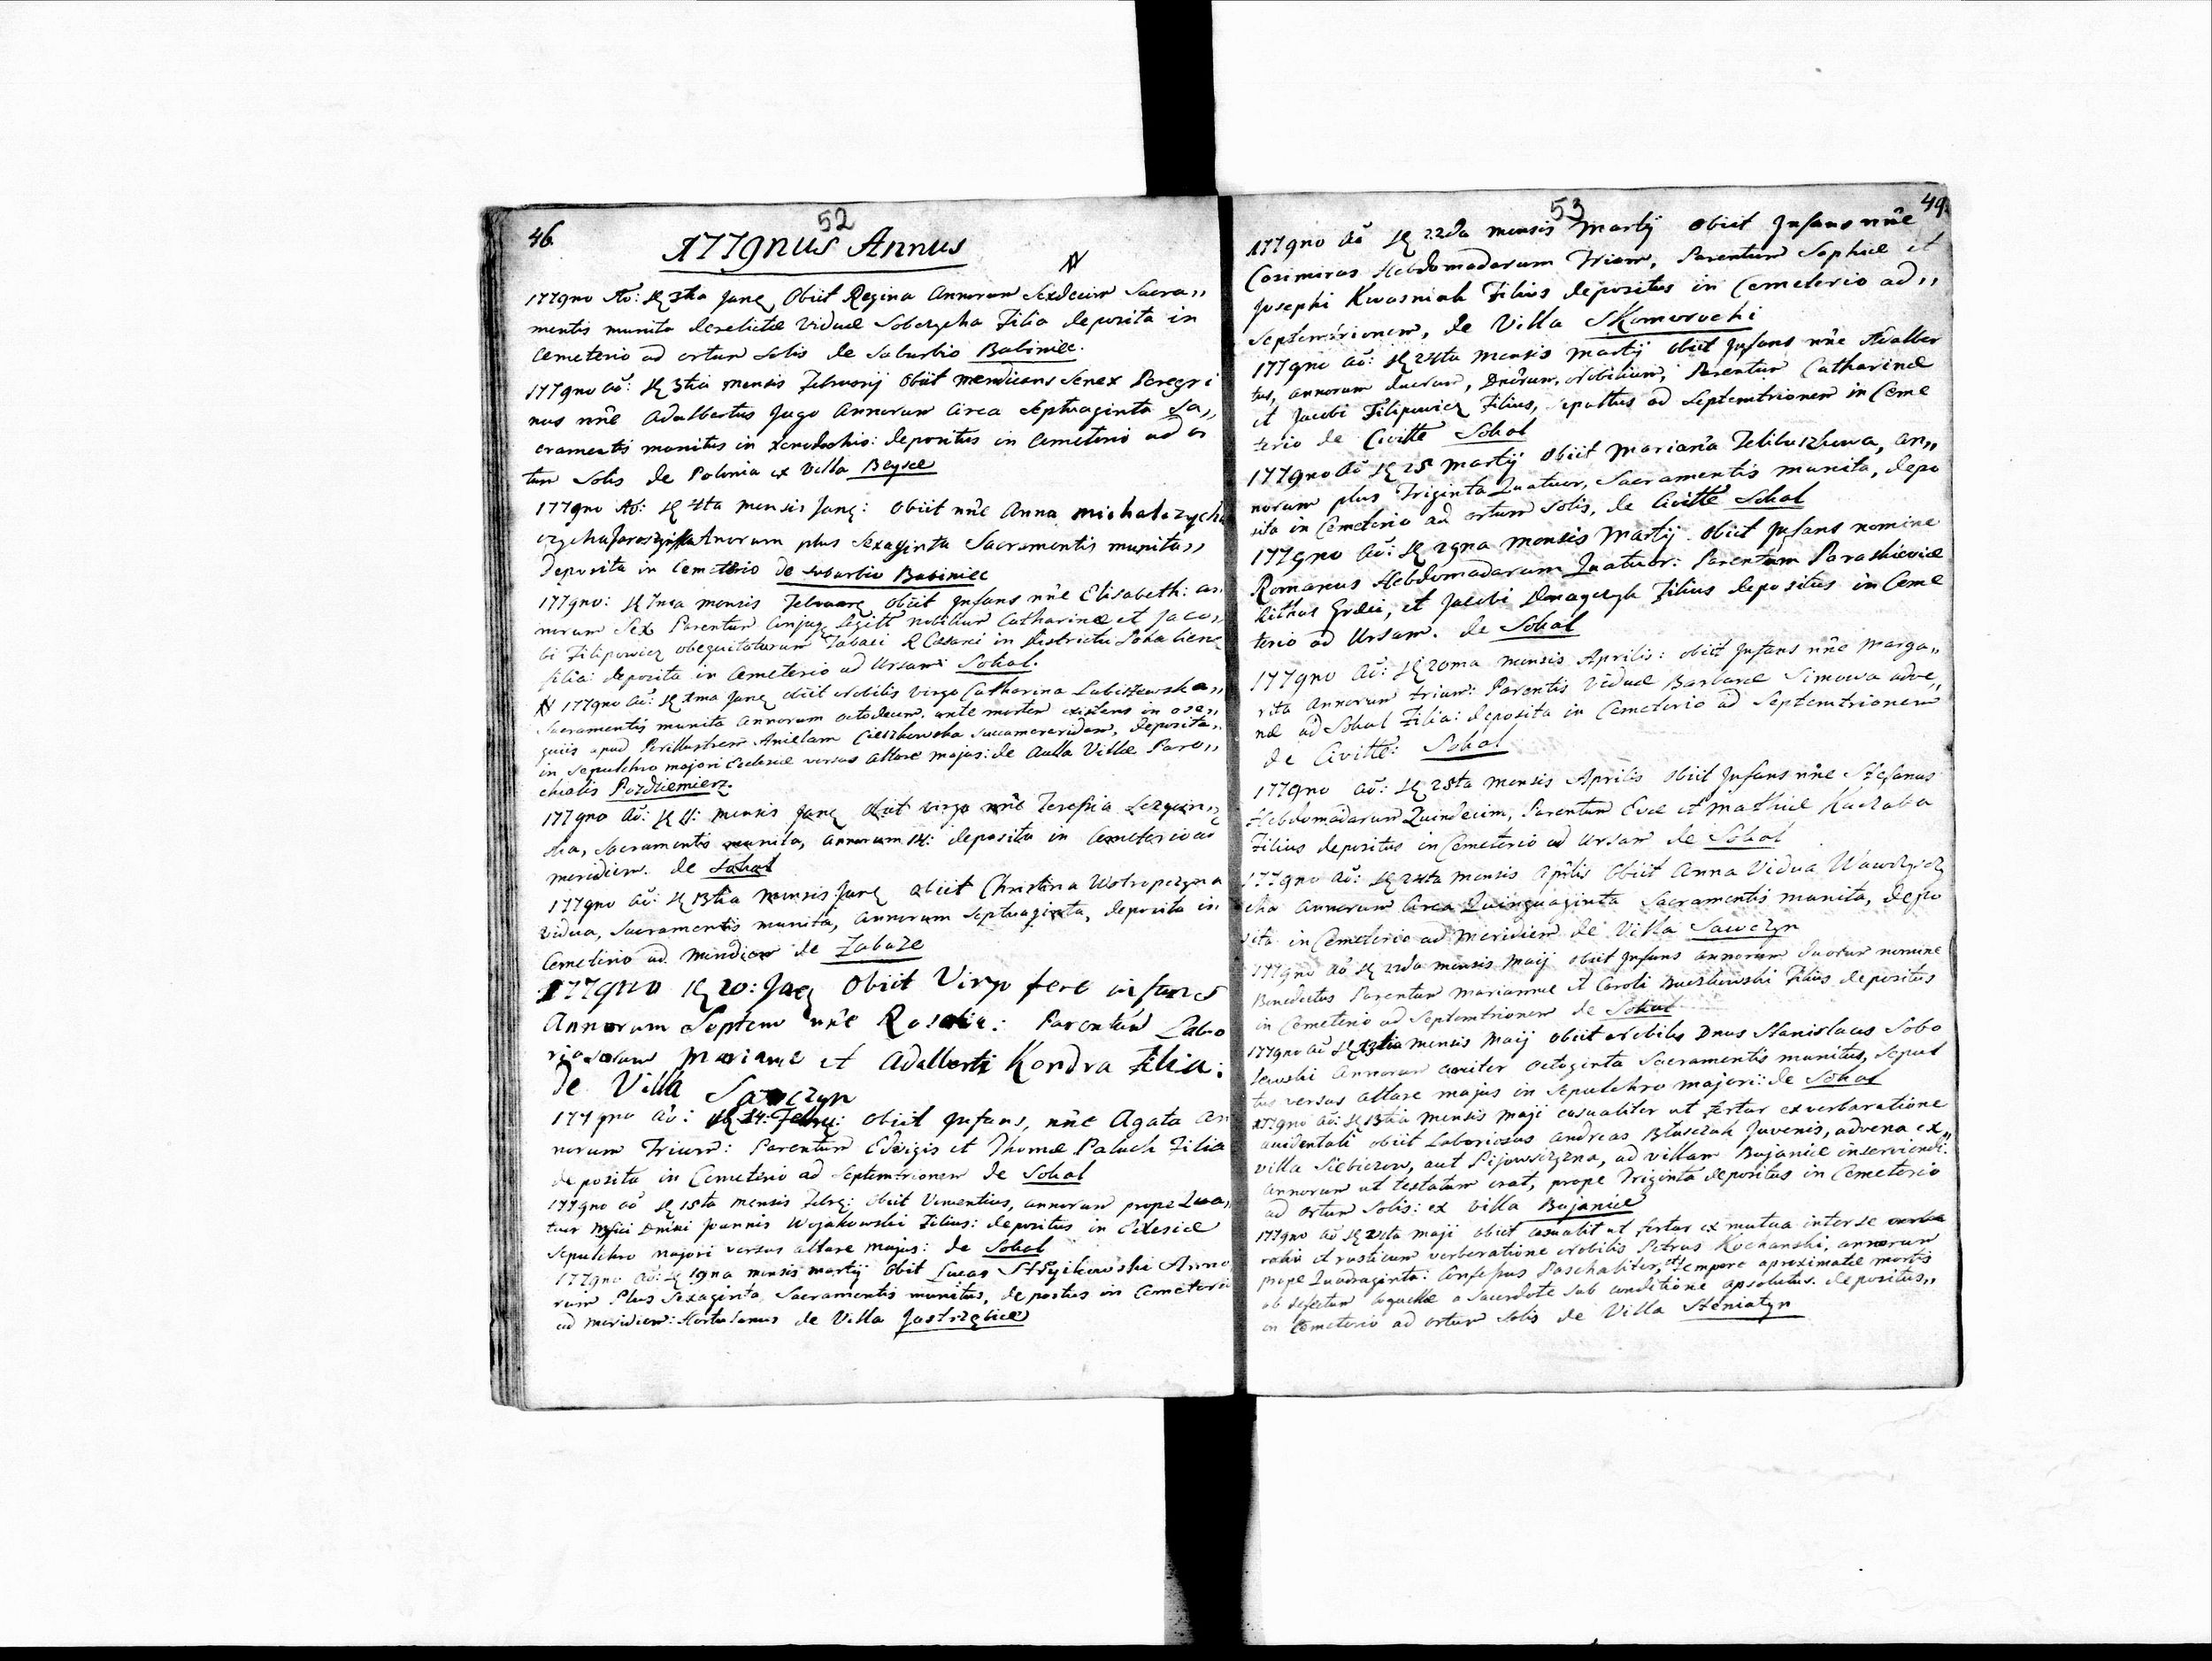 46.
52
1779nus Annus
1779no Ao: d 3tia Janr Obiit Regina Annorum Sexdecim Sacra,,
mentis munita derelictæ Viduæ Soberzycha Filia deposita in
Cemeterio ad ortum solis de Suburbio Babiniec.
1779no ao: d 3tia mensis Februarij Obiit mendicans Senex Peregri
nus nne Adalbertus Jugo Annorum Circa Septuaginta Sa,,
cramentis munitus in Xenodochio: depositus in Cemeterio ad or
tum Solis de Polonia ex Villa
1779no Ao: d 4ta mensis Janr: Obiit nne Anna
Annorum plus Sexaginta Sacramentis munita,,
Deposita in Cemeterio de suburbio Babiniec
1779no: d mensis Februarij obiit Infans nne Elisabeth: an
norum Sex Parentum Conjug Legitt nobilium Catharinæ et Jaco,,
bi Filipowicz
filia: deposita in Cemeterio ad Ursam: Sokal.
1779no ao: d Janr obiit Nobilis Virgo Catharina Lubiszewska,,
Sacramentis munita Annorum octodecim. ante mortem existens in
apud Perillustrem Aniellam deposita,,
in Sepulchro majori Ecclesiæ versus altare majus: de Aulla Villæ Paro,,
chialis Pozdziemierz.
1779no ao: d 11: mensis Janr Obiit Virgo nne Teressia
ska, Sacramentis munita, Annorum 14: deposita in Cemeterio ad
meridiem. de Sokal
1779no ao: d 13tia mensis Janr obiit Christina
vidua, Sacramentis munita, Annorum Septuaginta, deposita in
Cemeterio ad meridiem de Zabuze
1779no d 20: Janr Obiit Virgo fere infans
Annorum Septem nne Rosalia: Parentum Labo
riosorum Mariannæ et Adalberti Kondra Filia:
de Villa Sawczyn
1779no ao: d 14: Febr: Obiit Infans, nne Agata an
norum Trium: Parentum Edvigis et Thomæ Paluch Filia
deposita in Cemeterio ad Septemtrionem de Sokal
1779no ao d 15ta mensis Febr: Obiit Vincentius, annorum prope Qua,,
tuor Mfici Dmini Joannis Wojakowski Filius: depositus in Ecclesiæ
Sepulchro majori versus altare majus: de Sokal
1779no ao: d 19na mensis martij Obiit Lucas Stryikowski Anno
rum Plus Sexaginta, Sacramentis munitus, depositus in Cemeterio
ad meridiem: Hortulanus de Villa Jastrzębice
49.
53
1779no ao d 22da mensis Martij Obiit Infans nne
Casimirus Hebdomadarum Trium, Parentum Sophiæ et
Josephi Kwasniak Filius depositus in Cemeterio ad,,
Septemtrionem, de Villa Skomorochi
1779no ao: d 24ta mensis martij obiit Infans nne Adalber
tus, annorum duorum, Dnorum Nobilium, Parentum Catharinæ
et Jacobi Filipowicz Filius, sepultus ad Septemtrionem in Ceme
terio de Civitte Sokal
1779no ao d 25 martij obiit Marianna an,,
norum plus Triginta Quatuor, Sacramentis munita, depo
sita in Cemeterio ad ortum Solis, de Civitte Sokal
1779no ao: d 29na mensis Martij obiit Infans nomine
Romanus Hebdomadarum Quatuor: Parentum Paraskieviæ
Rithus Græci, et Jacobi Filius depositus in Ceme
terio ad Ursam. de Sokal
1779no ao: d 20ma mensis Aprilis: obiit Infans nne Marga,,
rita Annorum trium: Parentis Viduæ Barbaræ Simowa adve,,
næ ad Sokal Filia: deposita in Cemeterio ad Septemtrionem
de Civitte: Sokal
1779no ao: d 25ta mensis Aprilis obiit Infans nne Stefanus
Hebdomadarum Quindecim, Parentum Evæ et Mathiæ Kaczaba
Filius depositus in Cemeterio ad Ursam de Sokal
1779no ao: d 24ta mensis Aprilis Obiit Anna Vidua
cha Annorum Circa Quinquaginta Sacramentis munita, depo
sita in Cemeterio ad Meridiem de Villa Sawczyn
1779no ao d 22da mensis Maij obiit Infans annorum duorum nomine
Benedictus Parentum Mariannæ et Caroli Filius depositus
in Cemeterio ad Septemtrionem de Sokal
1779no ao d 13tia mensis Maij obiit Nobilis Dnus Stanislaus Sobo
lewski Annorum Octoginta Sacramentis munitus, Sepul
tus versus altare majus in Sepulchro majori: de Sokal
1779no ao: d 13tia mensis Maji casualiter ut fertur ex verberatione
accidentali obiit Laboriosus Andreas Juvenis, advena ex,,
villa Siebieczow, aut Pijowszczyzna, ad villam Bojanice inserviendi.
Annorum ut testatum erat, prope Triginta depositus in Cemeterio
ad ortum Solis: ex Villa Bojanice
1779no ao d maji obiit casualit ut fertur ex mutua inter se
et rusticum verberatione Nobilis Petrus Kochanski, annorum
prope Quadraginta: Confessus Paschaliter, et tempore aproximatæ mortis
ob defectum loquellæ a Sacerdote sub conditione apsolutus. depositus,,
in Cemeterio ad ortum Solis de Villa Steniatyn